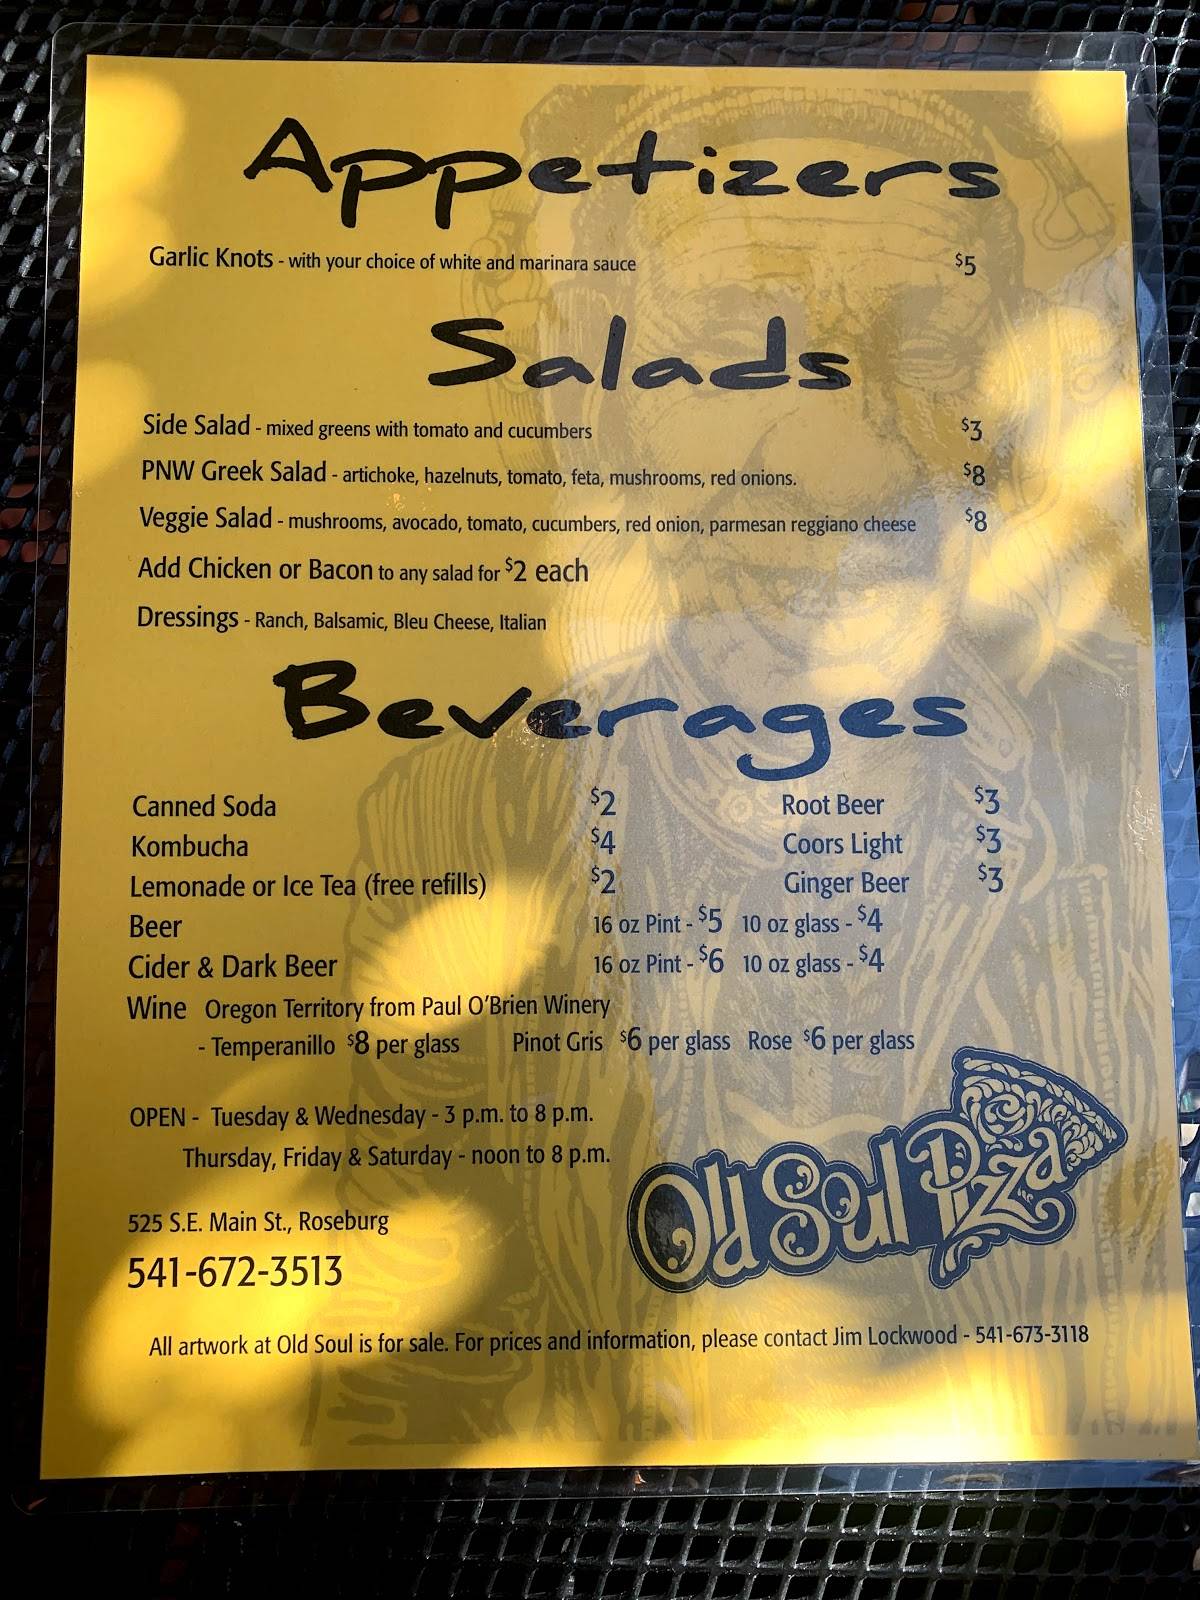 Appetizers
Garlic Knots - with your choice of white and marinara sauce $5
Salads
Side Salad - mixed greens with tomato and cucumbers $3
PNW Greek Salad - artichoke, hazelnuts, tomato, feta, mushrooms, red onions. $8
Veggie Salad - mushrooms, avocado, tomato, cucumbers, red onion, parmesan reggiano cheese $8
Add Chicken or Bacon to any salad for $2 each
Dressings - Ranch, Balsamic, Bleu Cheese, Italian
Beverages
Canned Soda $2 Root Beer $3
Kombucha $4 Coors Light $3
Lemonade or Ice Tea (free refills) $2 Ginger Beer $3
Beer 16 oz Pint - $5 10 oz glass - $4
Cider & Dark Beer 16 oz Pint - $6 10 oz glass - $4
Wine Oregon Territory from Paul O'Brien Winery
- Temperanillo $8 per glass Pinot Gris $6 per glass Rose $6 per glass
OPEN - Tuesday & Wednesday - 3 p.m. to 8 p.m.
Thursday, Friday & Saturday - noon to 8 p.m.
Old Soul Pizza
525 S.E. Main St., Roseburg
541-672-3513
All artwork at Old Soul is for sale. For prices and information, please contact Jim Lockwood - 541-673-3118